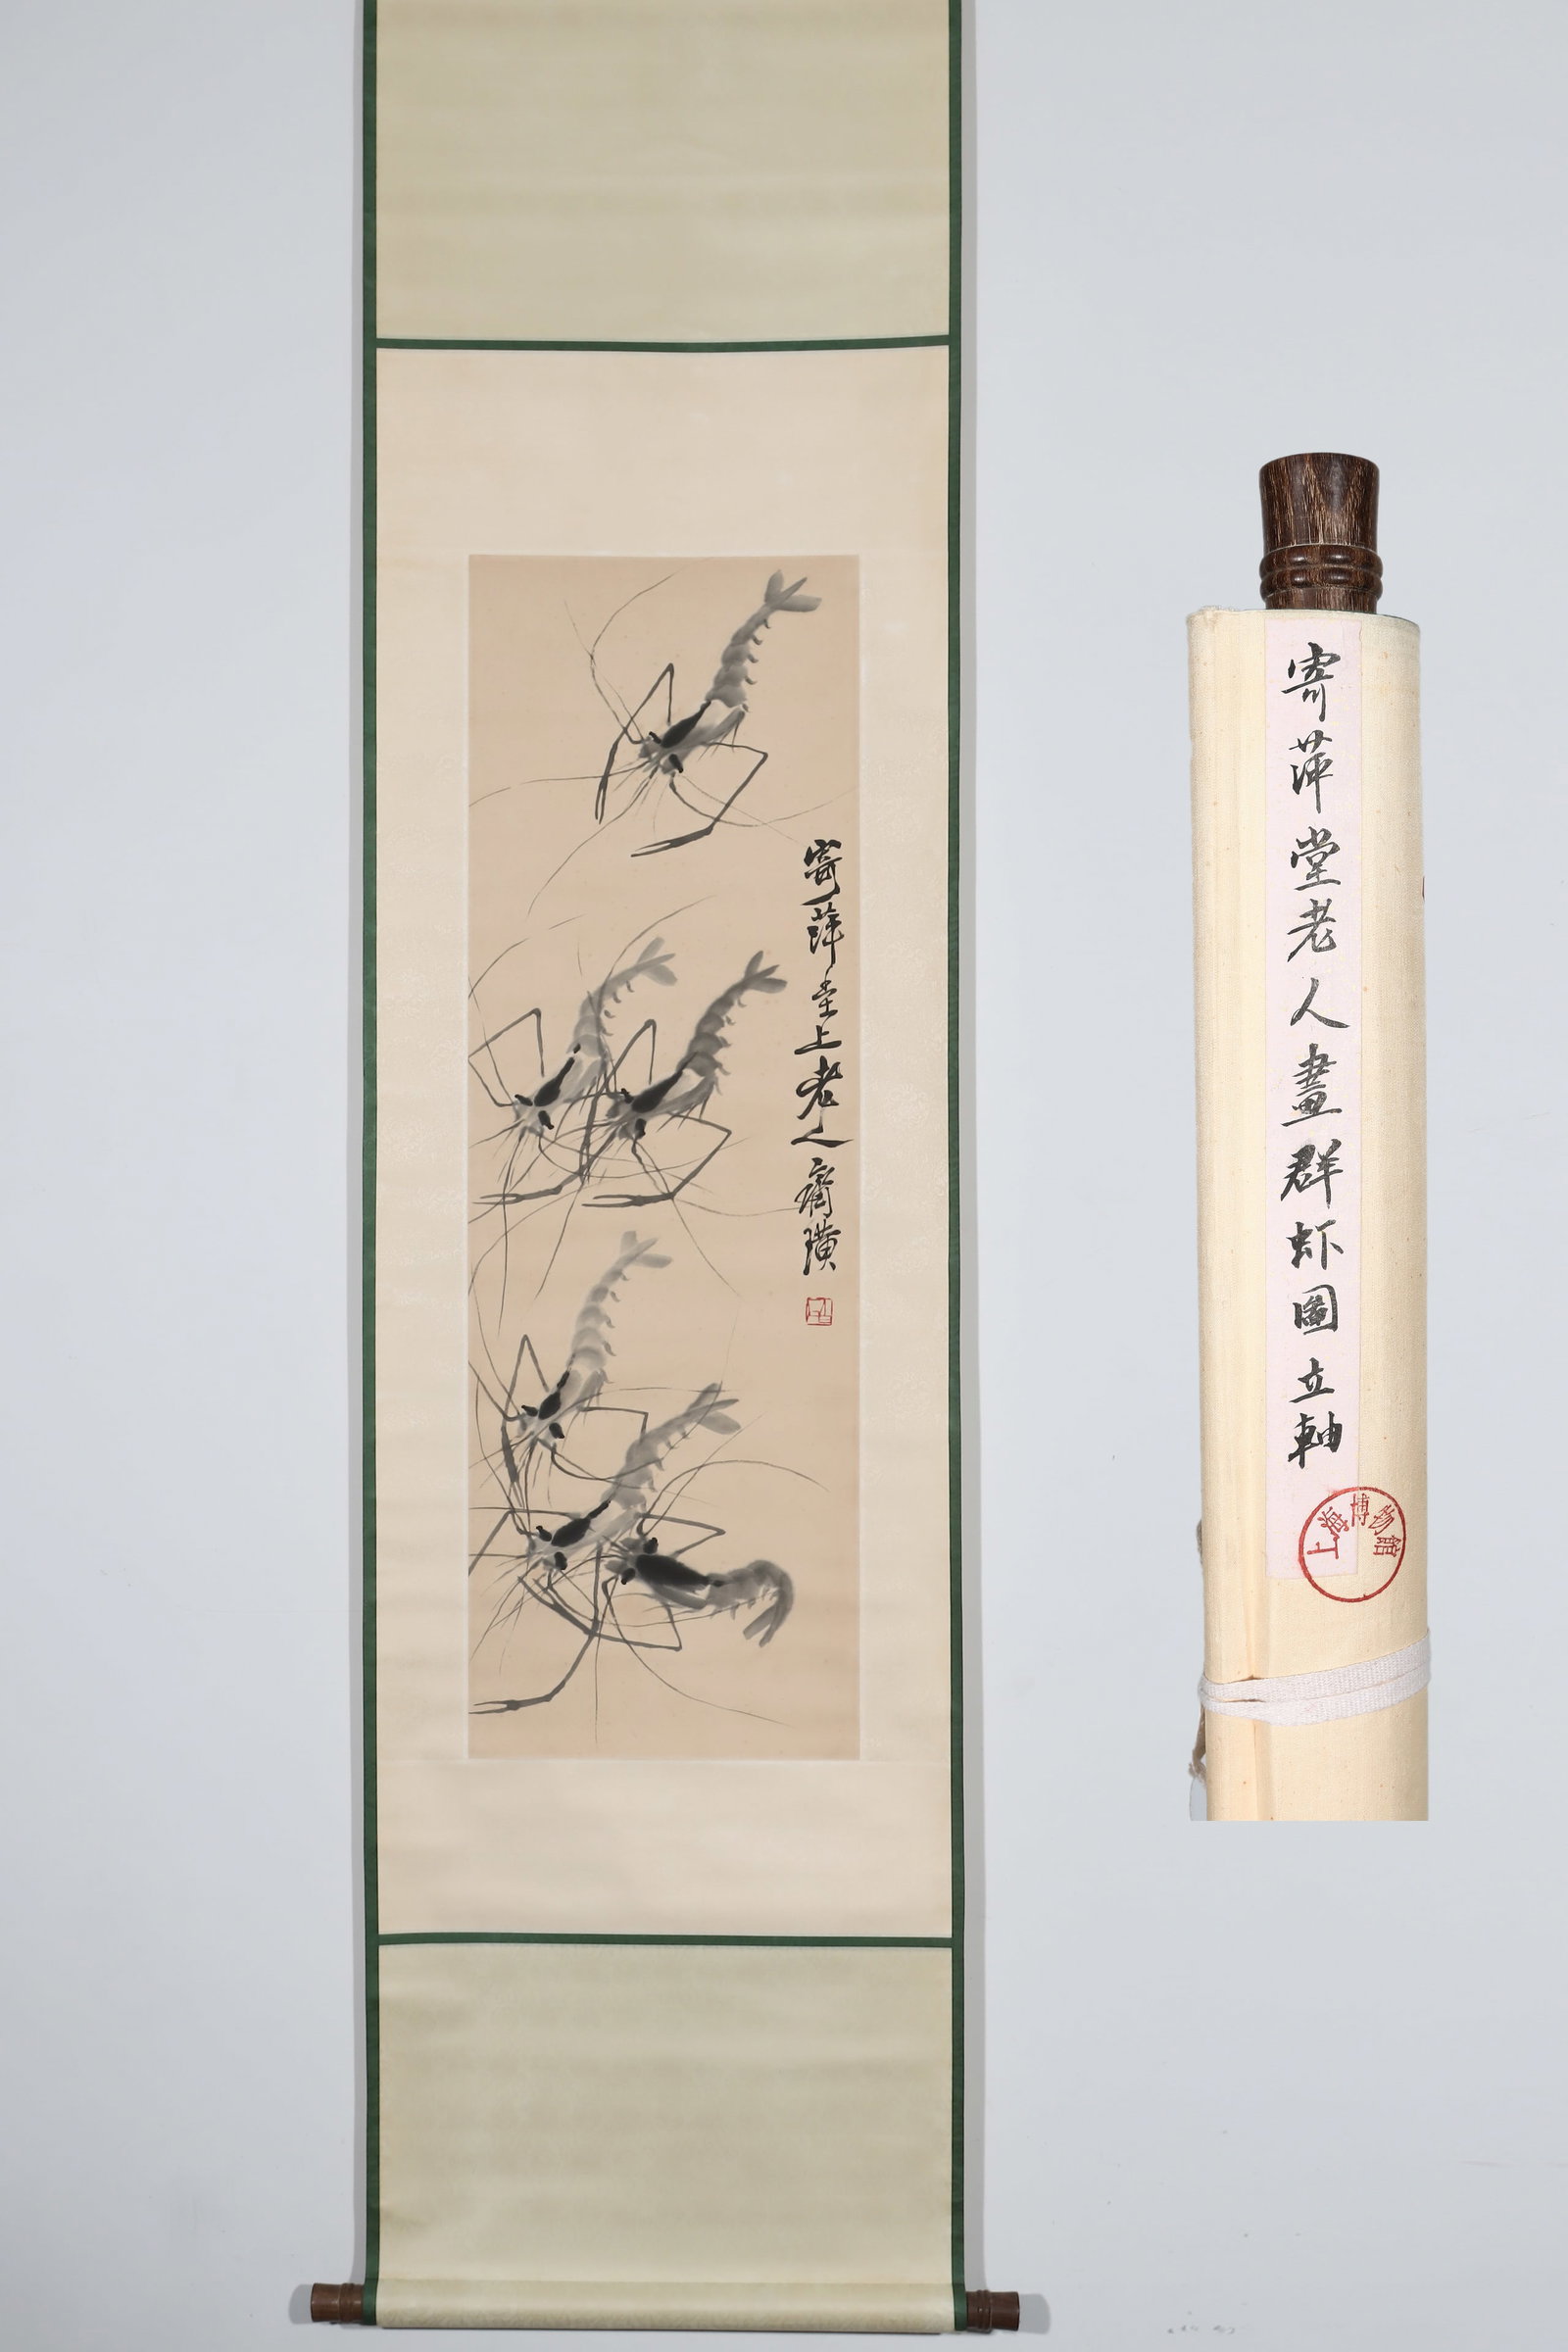 寄萍堂上老人齊璜
寄萍堂老人畫群虾圖立軸
上海博物館